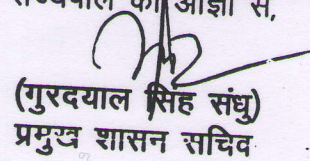 राज्यपाल की आज्ञा से,
(गुरदयाल सिंह संधु)
प्रमुख शासन सचिव